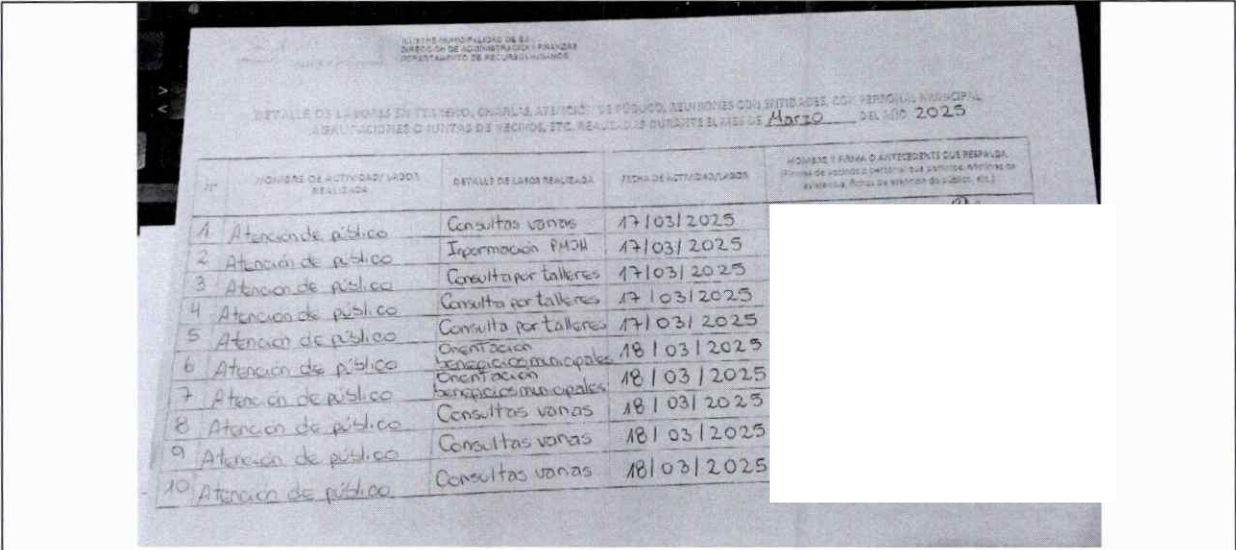 ILUSTRE MUNICIPALIDAD DE
DIRECCIÓN DE ADMINISTRACIÓN Y FINANZAS
DEPARTAMENTO DE RECURSOS HUMANOS
DETALLE DE LABORES EN TERRENO, CHARLAS, ATENCIÓN DE PÚBLICO, REUNIONES CON ENTIDADES, CON PERSONAL MUNICIPAL,
AGRUPACIONES O JUNTAS DE VECINOS, ETC. REALIZADAS DURANTE EL MES DE Marzo DEL AÑO 2025
N° NOMBRE DE ACTIVIDAD/LABOR REALIZADA DETALLE DE LABOR REALIZADA FECHA DE ACTIVIDAD/LABOR NOMBRE Y FIRMA O ANTECEDENTE QUE RESPALDA (Firmas de vecinos o personal que participa, nóminas de asistencia, fichas de atención de público, etc.)
1 Atención de público Consultas varias 17/03/2025
2 Atención de público Información PMJH 17/03/2025
3 Atención de público Consulta por talleres 17/03/2025
4 Atención de público Consulta por talleres 17/03/2025
5 Atención de público Consulta por talleres 17/03/2025
6 Atención de público Orientación beneficios municipales 18/03/2025
7 Atención de público Orientación beneficios municipales 18/03/2025
8 Atención de público Consultas varias 18/03/2025
9 Atención de público Consultas varias 18/03/2025
10 Atención de público Consultas varias 18/03/2025